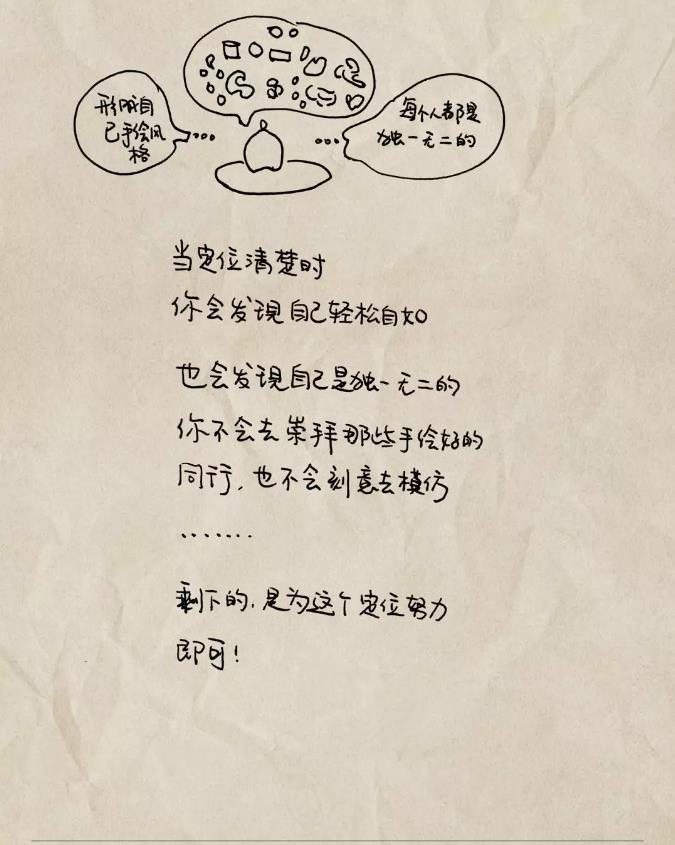 形成自
己手绘风
格
每个人都是
独一无二的
当定位清楚时
你会发現自己轻松自如
也会发現自己是独一无二的
你不会去崇拜那些手绘好的
同行，也不会刻意去模仿
·······
剩下的，是为这个定位努力
即可！